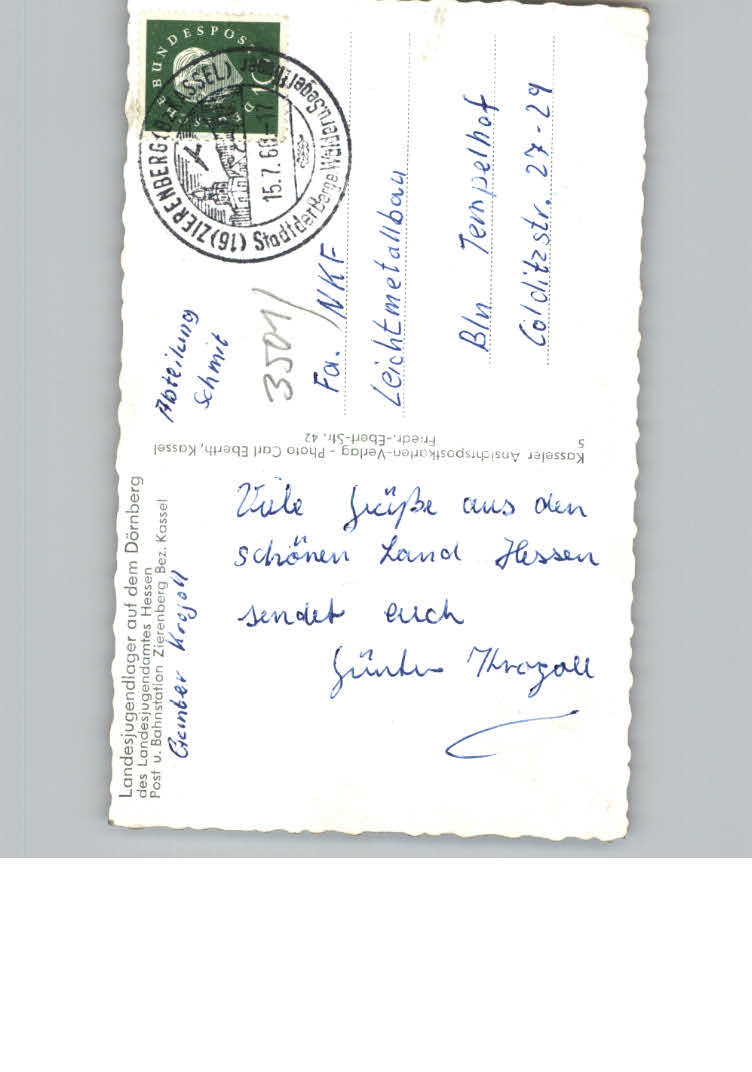 Landesjugendlager auf dem Dörnberg
des Landesjugendamtes Hessen
Post u. Bahnstation Zierenberg Bez. Kassel
Günter Krogoll
Viele Grüße aus den
schönen Land Hessen
sendet euch
Günter Krogoll
Kasseler Ansichtspostkarten-Verlag - Photo Carl Eberth, Kassel
Friedr.-Ebert-Str. 42
5
DEUTSCHE BUNDESPOST
10
(16) ZIERENBERG (BZ. KASSEL)
15.7.60-17
Stadt der Berge, Wälder u. Segelflieger
Abteilung
Schmit
3501/
Fa. NKF
Leichtmetallbau
Bln Tempelhof
Colditzstr. 27-29